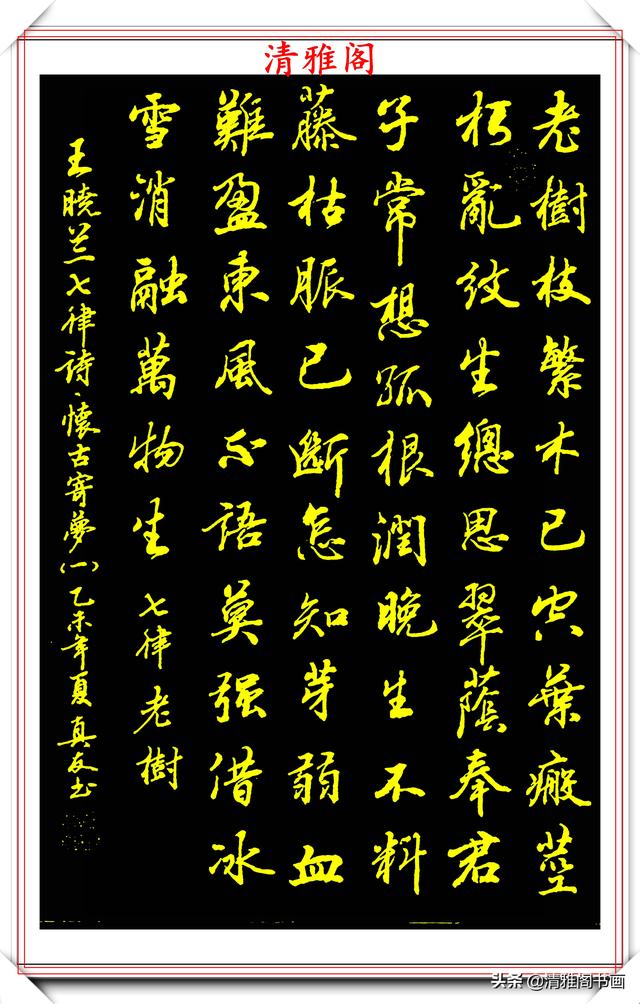 清雅阁
老樹枝繁木已葉瘢莖
朽亂紋生總思翠蔭奉君
子常想孤根潤晚生不料
藤枯脈已斷怎知芽弱血
難盈東風不語莫强借冰
雪消融萬物生 七律老樹
王曉兰七律詩、懷古寄夢(一)乙未年夏真友书
头条@清雅阁书画